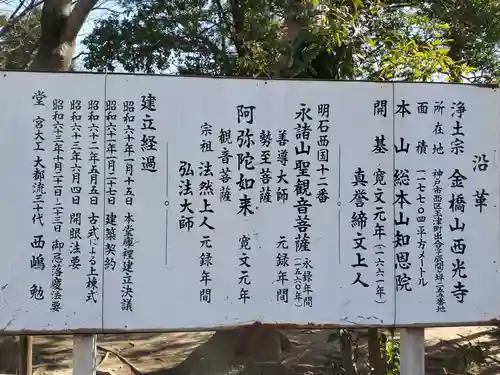 沿革
浄土宗 金橋山西光寺
所在地 神戸市西区玉津町出合字辰間ノ坪一五六番地
面積 一七七〇四平方メートル
本山 総本山知恩院
開基 寛文元年(一六六一年)
真誉締文上人
明石西国十一番
永諸山聖観音菩薩 永録年間(一五六〇年)
善導大師 元録年間
勢至菩薩
阿弥陀如来 寛文元年
観音菩薩
宗祖 法然上人 元録年間
弘法大師
建立経過
昭和六十年一月十五日 本堂庫裡建立決議
昭和六十一年一月二十七日 建築契約
昭和六十二年五月五日 古式による上棟式
昭和六十三年六月四日 開眼法要
昭和六十三年十月二十二日〜二十三日 御忌落慶法要
堂宮大工 大都流三十代 西嶋勉